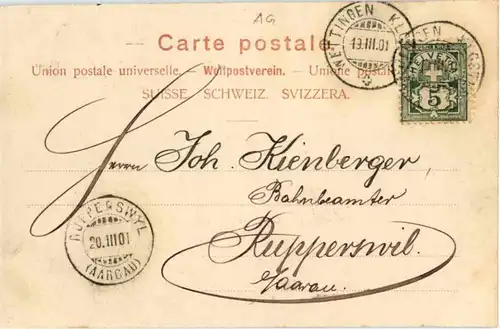 AG
Carte postale.
Union postale universelle. – Weltpostverein. – Unione postale
SUISSE. SCHWEIZ. SVIZZERA.
WETTINGEN
19.III.01
5
Herrn Joh. Kienberger,
Bahnbeamter
Rupperswil.
Aarau.
RUPPERSWYL
20.III.01
(AARGAU)